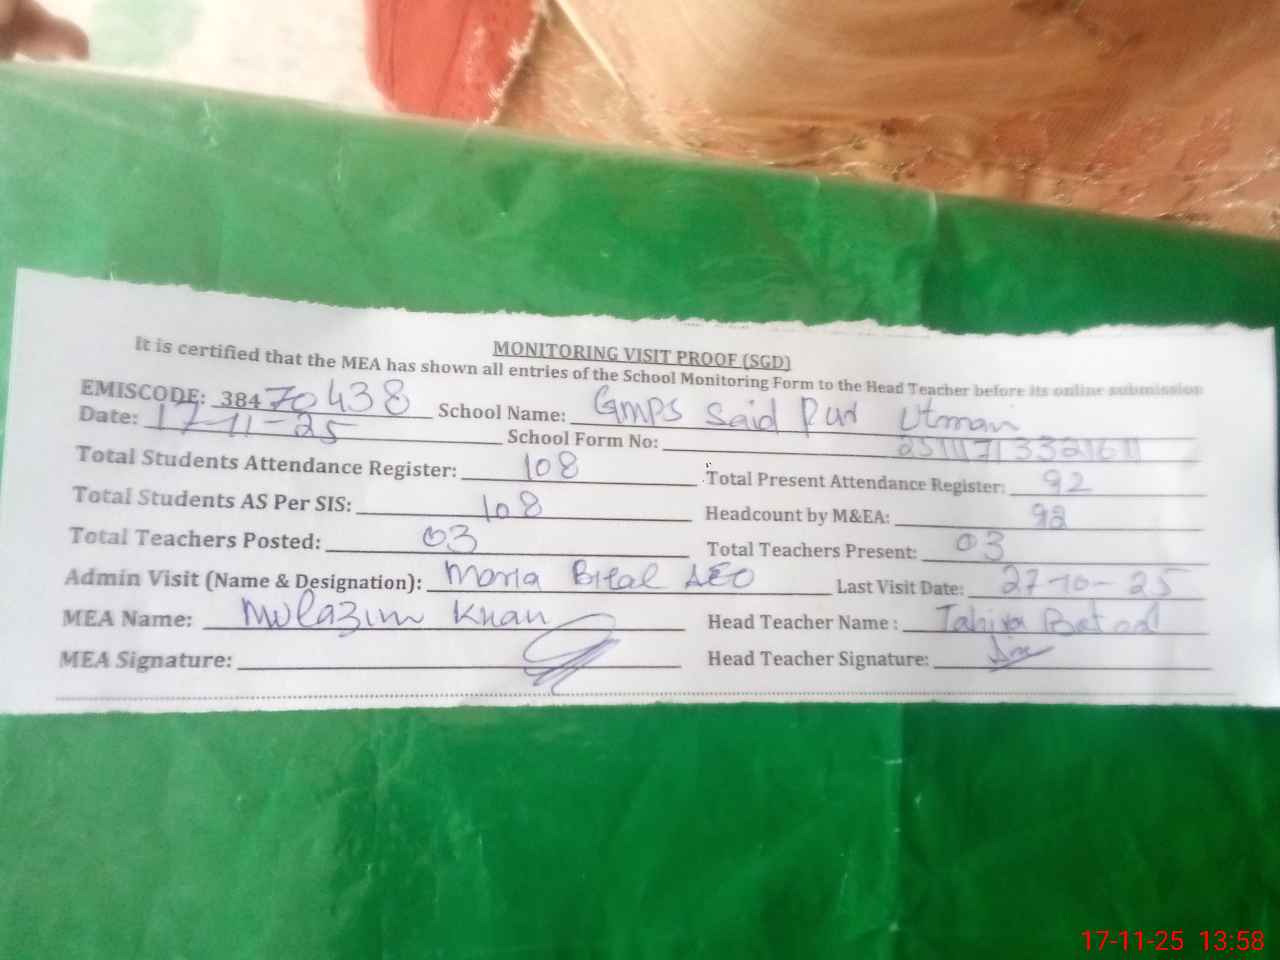 MONITORING VISIT PROOF (SGD)
It is certified that the MEA has shown all entries of the School Monitoring Form to the Head Teacher before its online submission
EMISCODE: 38470438 School Name: GMPS Said Pur Utman
Date: 17-11-25 School Form No:
Total Students Attendance Register: 108 Total Present Attendance Register: 92
Total Students AS Per SIS: 108 Headcount by M&EA: 92
Total Teachers Posted: 03 Total Teachers Present: 03
Admin Visit (Name & Designation): Bilal AEO Last Visit Date: 27-10-25
MEA Name: Mulazim Khan Head Teacher Name :
MEA Signature: Head Teacher Signature:
17-11-25 13:58